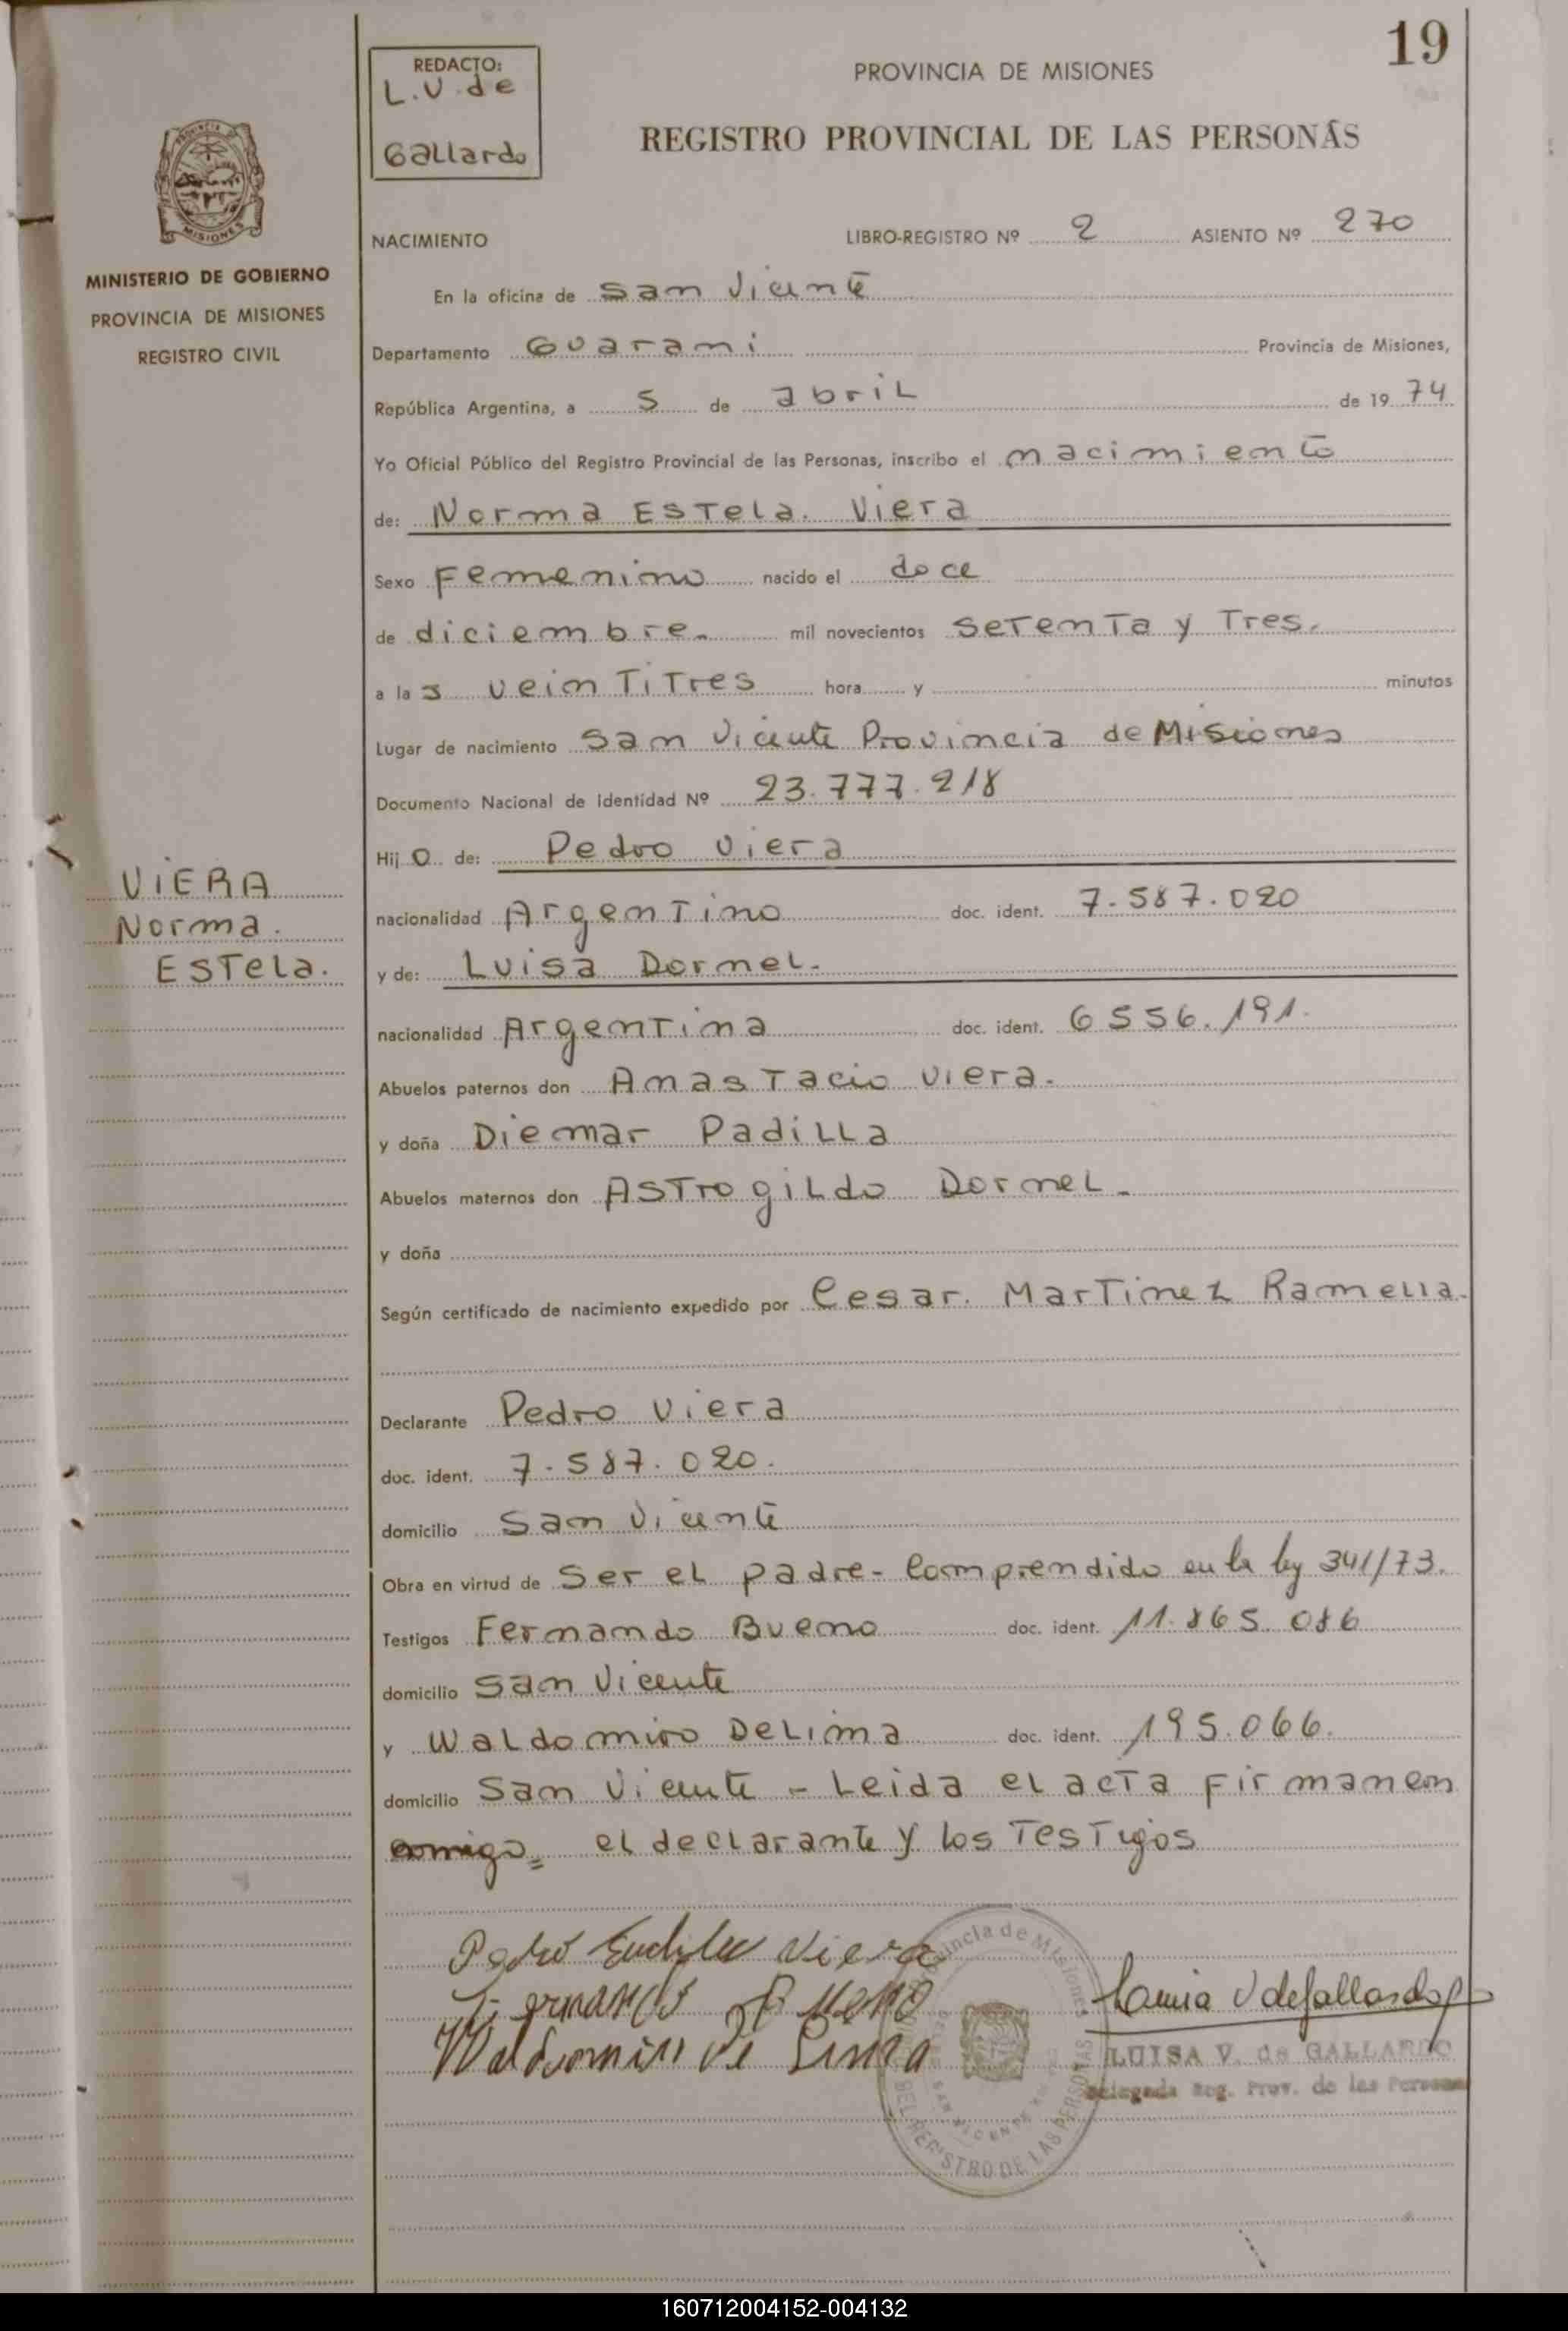 19
REDACTO:
L.V. de
Gallardo
PROVINCIA DE MISIONES
REGISTRO PROVINCIAL DE LAS PERSONAS
MISIONES
MINISTERIO DE GOBIERNO
PROVINCIA DE MISIONES
REGISTRO CIVIL
NACIMIENTO LIBRO-REGISTRO Nº 2 ASIENTO Nº 270
En la oficina de San Vicente
Departamento Guarani Provincia de Misiones,
República Argentina, a 5 de abril de 1974
Yo Oficial Público del Registro Provincial de las Personas, inscribo el nacimiento
de: Norma Estela. Viera
Sexo Femenino nacido el doce
de diciembre. mil novecientos setenta y Tres.
a las veintitres hora y minutos
Lugar de nacimiento San Vicente Provincia de Misiones
Documento Nacional de Identidad Nº 23.777.218
Hijo de: Pedro Viera
VIERA
Norma.
Estela.
nacionalidad Argentino doc. ident. 7.587.020
y de: Luisa Dornel.
nacionalidad Argentina doc. ident. 6556.191.
Abuelos paternos don Anastacio Viera.
y doña Diemar Padilla
Abuelos maternos don Astrogildo Dornel.
y doña
Según certificado de nacimiento expedido por Cesar. Martinez Ramella.
Declarante Pedro Viera
doc. ident. 7.587.020.
domicilio San Vicente
Obra en virtud de Ser el padre- Comprendido en la ley 341/73.
Testigos Fernando Bueno doc. ident. 11.865.086
domicilio San Vicente
y Waldomiro Delima doc. ident. 195.066.
domicilio San Vicente - Leida el acta firmanen
comigo= el declarante y los Testigos
Pedro Viera
Fernando Bueno
Waldomiro de Lima
Luisa V de Gallardo
LUISA V. de GALLARDO
Delegada Reg. Prov. de las Personas
Provincia de Misiones
DEL REGISTRO DE LAS PERSONAS
SAN VICENTE
160712004152-004132